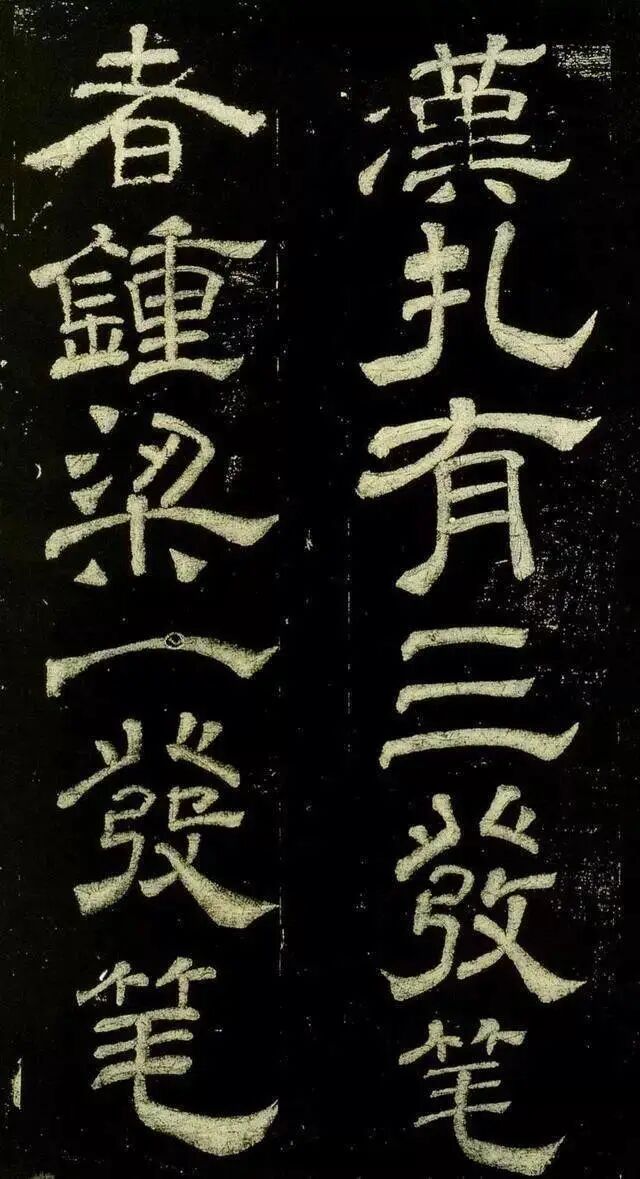 漢扎有三發笔
者鍾梁一發笔